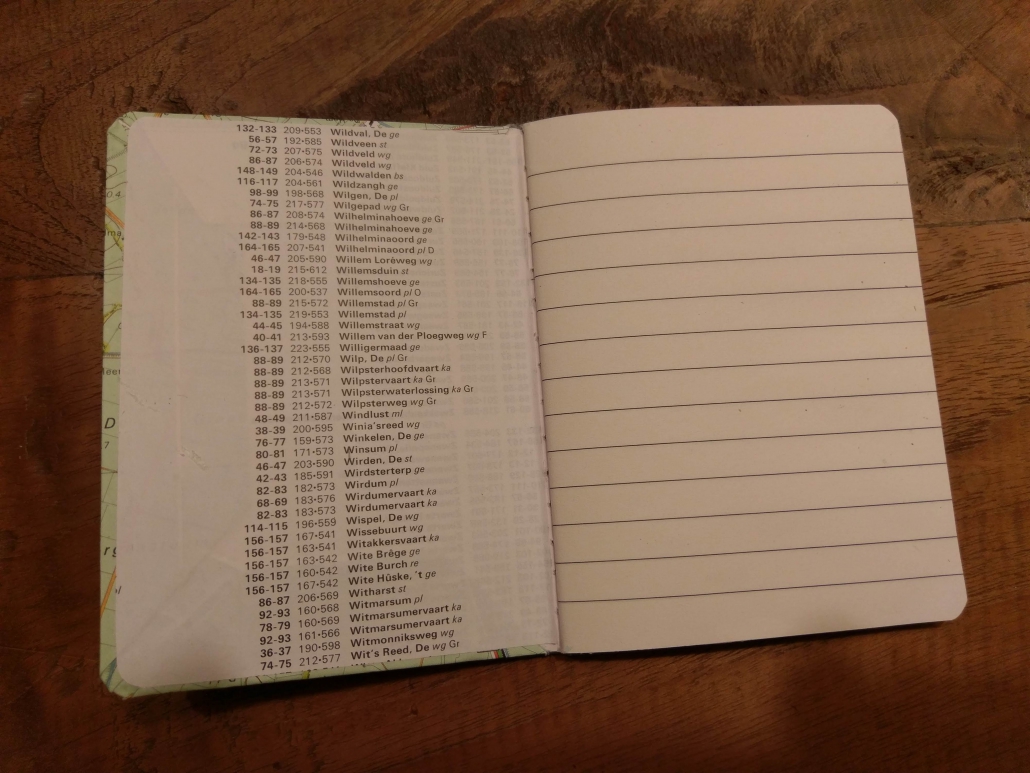 132-133 209•553 Wildval, De ge
56-57 192•585 Wildveen st
72-73 207•575 Wildveld wg
86-87 206•574 Wildveld wg
148-149 204•546 Wildwalden bs
116-117 204•561 Wildzangh ge
98-99 198•568 Wilgen, De pl
74-75 217•577 Wilgepad wg Gr
86-87 208•574 Wilhelminahoeve ge Gr
88-89 214•568 Wilhelminahoeve ge
142-143 179•548 Wilhelminaoord ge
164-165 207•541 Wilhelminaoord pl D
46-47 205•590 Willem Loréweg wg
18-19 215•612 Willemsduin st
134-135 218•555 Willemshoeve ge
164-165 200•537 Willemsoord pl O
88-89 215•572 Willemstad pl Gr
134-135 219•553 Willemstad pl
44-45 194•588 Willemstraat wg
40-41 213•593 Willem van der Ploegweg wg F
136-137 223•555 Willigermaad ge
88-89 212•570 Wilp, De pl Gr
88-89 212•568 Wilpsterhoofdvaart ka
88-89 213•571 Wilpstervaart ka Gr
88-89 213•571 Wilpsterwaterlossing ka Gr
88-89 212•572 Wilpsterweg wg Gr
48-49 211•587 Windlust ml
38-39 200•595 Winia'sreed wg
76-77 159•573 Winkelen, De ge
80-81 171•573 Winsum pl
46-47 203•590 Wirden, De st
42-43 185•591 Wirdsterterp ge
82-83 182•573 Wirdum pl
68-69 183•576 Wirdumervaart ka
82-83 183•573 Wirdumervaart ka
114-115 196•559 Wispel, De wg
156-157 167•541 Wissebuurt wg
156-157 163•541 Witakkersvaart ka
156-157 163•542 Wite Brêge ge
156-157 160•542 Wite Burch re
156-157 167•542 Wite Hûske, 't ge
86-87 206•569 Witharst st
92-93 160•568 Witmarsum pl
78-79 160•569 Witmarsumervaart ka
92-93 161•566 Witmarsumervaart ka
36-37 190•598 Witmonniksweg wg
74-75 212•577 Wit's Reed, De wg Gr